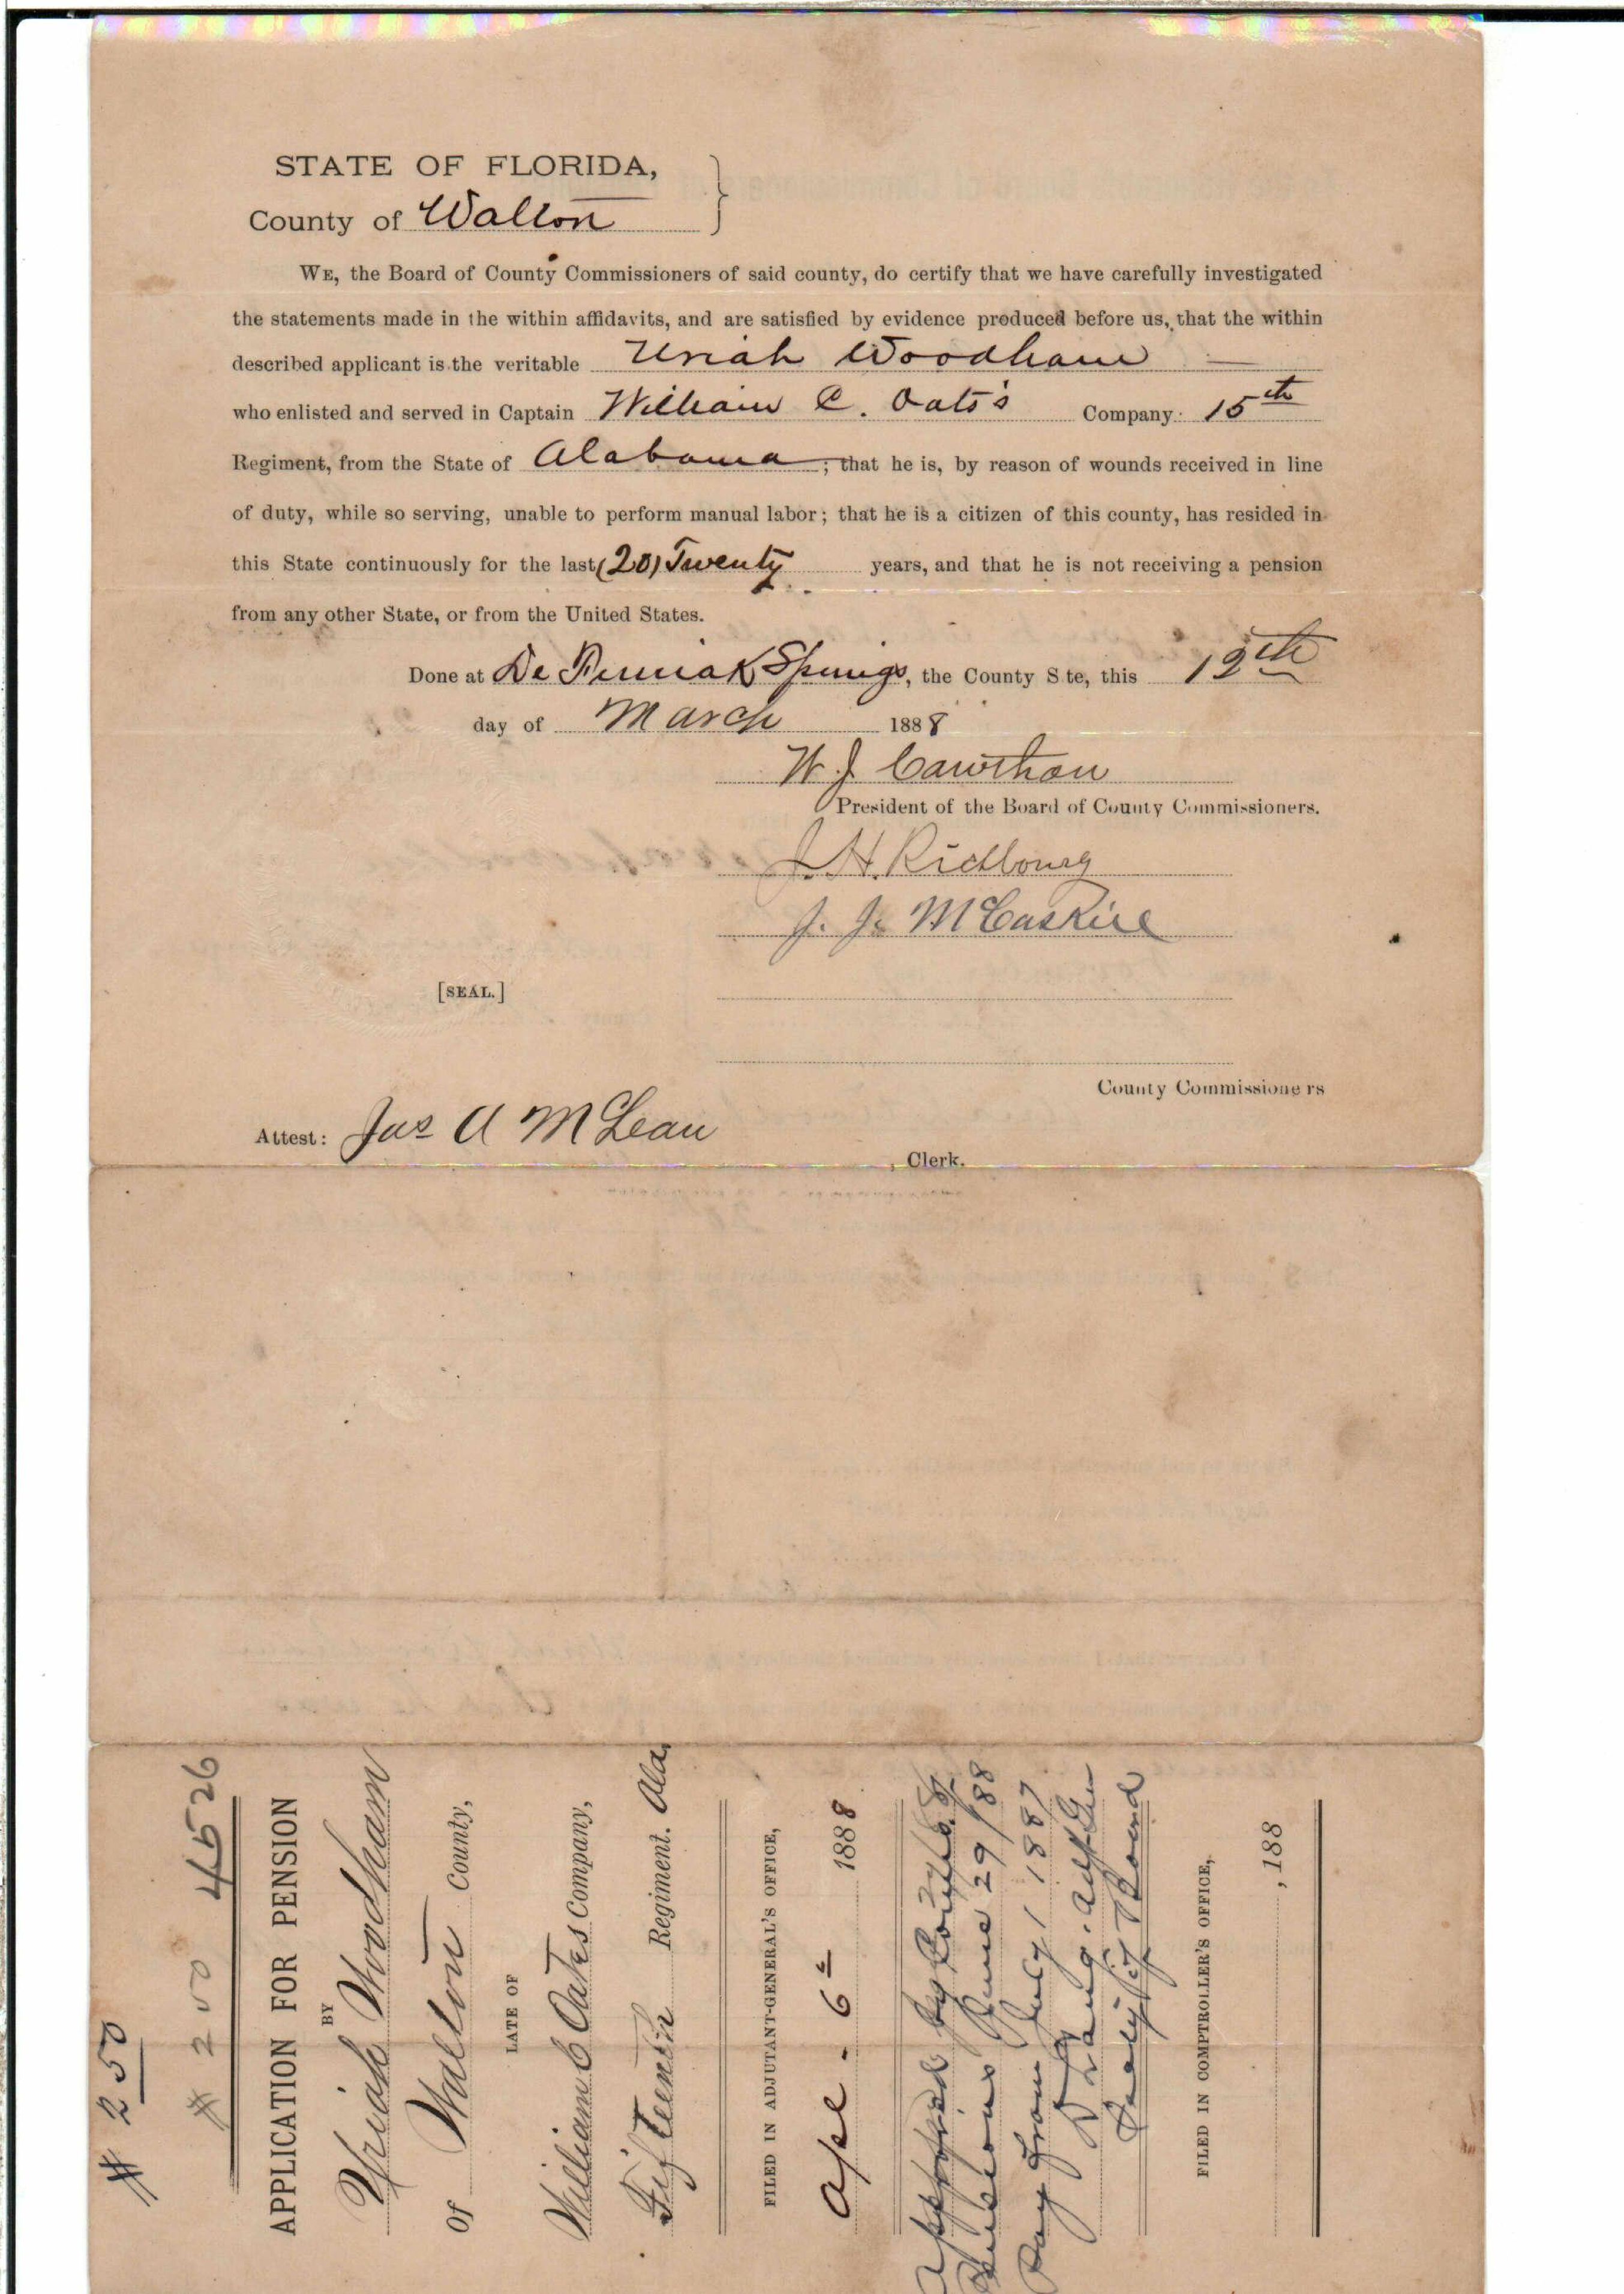 STATE OF FLORIDA,
County of Walton
WE, the Board of County Commissioners of said county, do certify that we have carefully investigated
the statements made in the within affidavits, and are satisfied by evidence produced before us, that the within
described applicant is the veritable Uriah Woodham
who enlisted and served in Captain William C. Oats's Company 15th
Regiment, from the State of Alabama; that he is, by reason of wounds received in line
of duty, while so serving, unable to perform manual labor; that he is a citizen of this county, has resided in
this State continuously for the last (20) Twenty years, and that he is not receiving a pension
from any other State, or from the United States.
Done at De Funiak Springs, the County S te, this 12th
day of March 1888
W J Cawthon
President of the Board of County Commissioners.
J. H. Richbourg
J. J. McCaskill
[SEAL.]
County Commissioners
Attest: Jas A McLean
, Clerk.
# 250
# 200 4526
APPLICATION FOR PENSION
BY
Uriah Woodham
Of Walton County,
LATE OF
William C Oates Company,
Fifteenth Regiment. Ala.
FILED IN ADJUTANT-GENERAL'S OFFICE,
Apl. 6th 1888
Approved by
Pensions June 29/88
Pay from July 1 1887
D Lang. Adjt Gen
Secy of Board
FILED IN COMPTROLLER'S OFFICE,
, 188